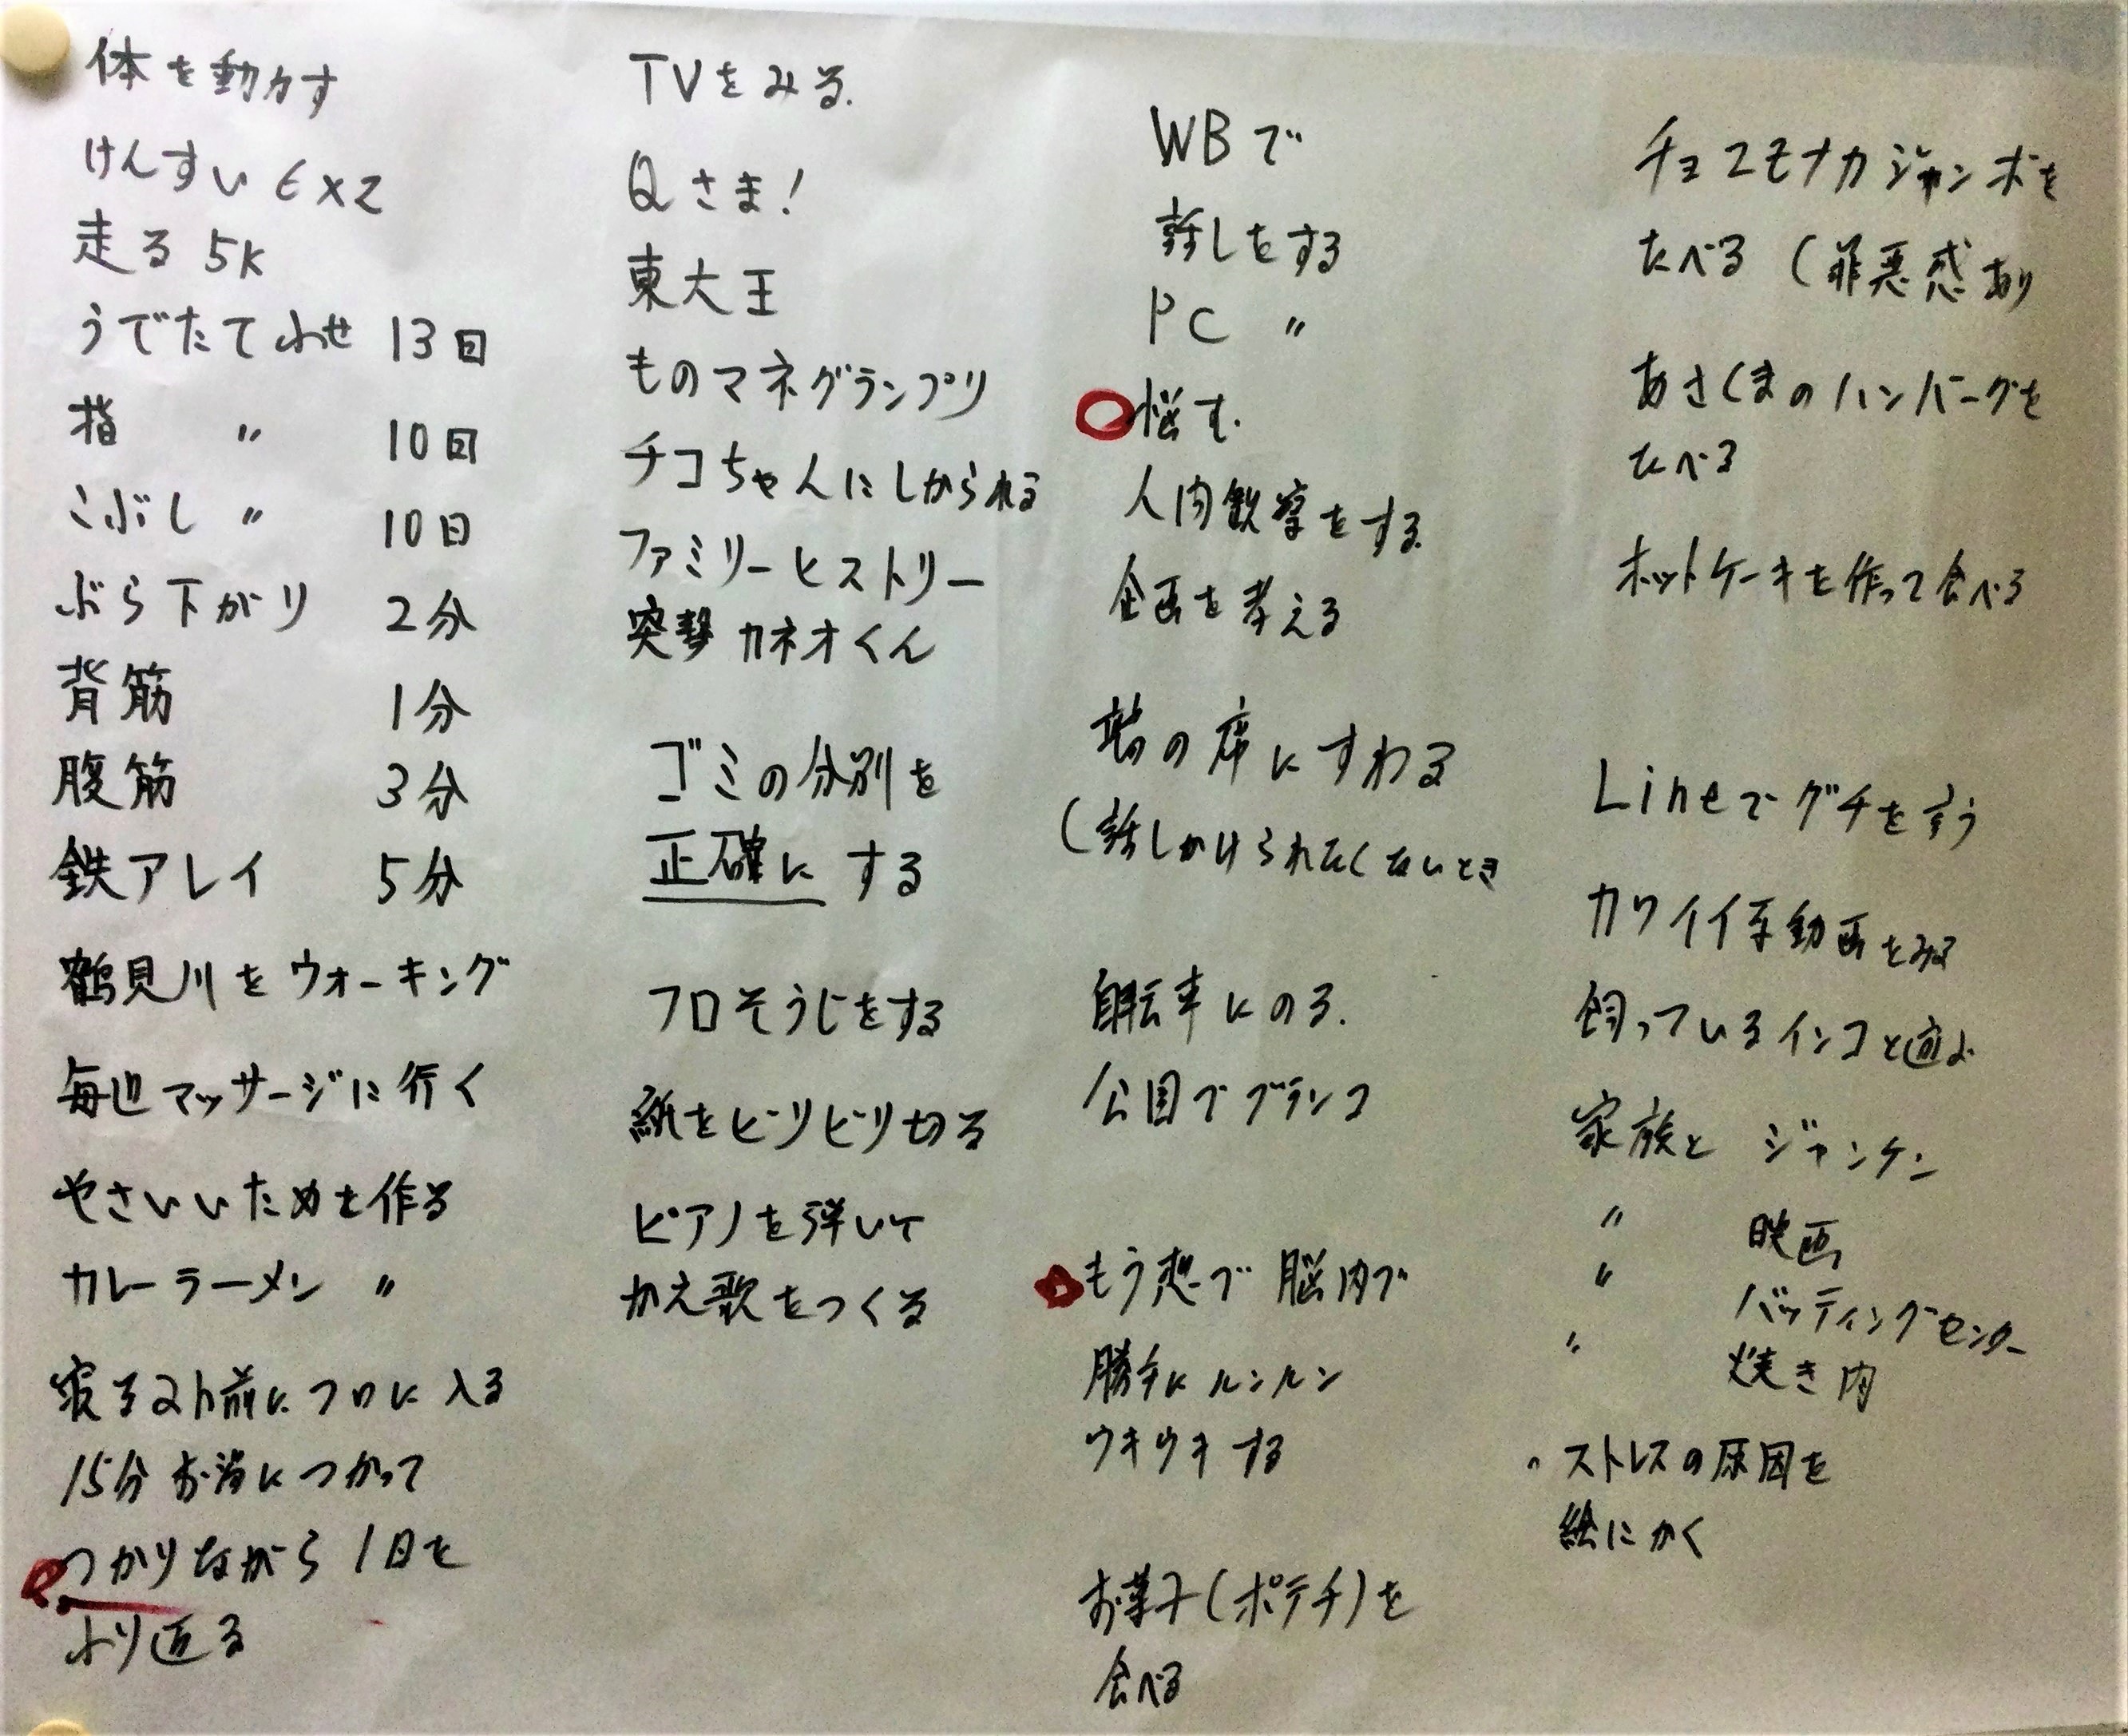 体を動カす
けんすい 6×2
走る 5K
うでたてふせ 13回
指 〃 10回
こぶし 〃 10回
ぶら下がり 2分
背筋 1分
腹筋 3分
鉄アレイ 5分
鶴見川を ウォーキング
毎週マッサージに行く
やさいいためを作る
カレーラーメン 〃
寝る2h前にフロに入る
15分お湯につかって
つかりながら1日を
ふり返る
TVをみる.
Qさま!
東大王
ものマネグランプリ
チコちゃんにしかられる
ファミリーヒストリー
突撃カネオくん
ゴミの分別を
正確にする
フロそうじをする
紙をビリビリ切る
ピアノを弾いて
かえ歌をつくる
WBで
話しをする
PC 〃
悩む.
人間観察をする
企画を考える
端の席にすわる
(話しかけられたくないとき
自転車にのる.
公園でブランコ
もう想で脳内で
勝手にルンルン
ウキウキする
お菓子(ポテチ)を
食べる
チョコモナカジャンボを
たべる (罪悪感あり
あさくまのハンバーグを
たべる
ホットケーキを作って食べる
Lineでグチを言う
カワイイ系動画をみる
飼っているインコと遊ぶ
家族と ジャンケン
〃 映画
〃 バッティングセンター
〃 焼き肉
・ストレスの原因を
絵にかく